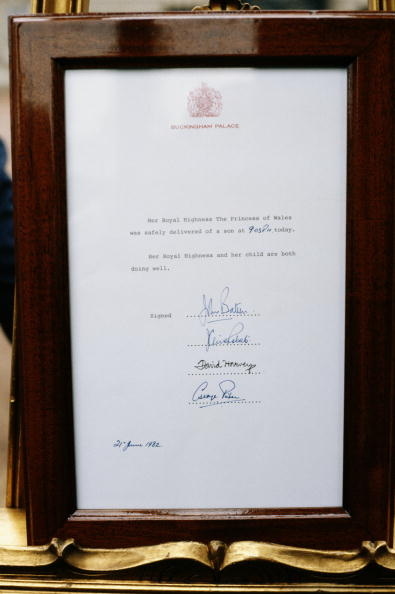 BUCKINGHAM PALACE
Her Royal Highness The Princess of Wales
was safely delivered of a son at 9.03pm today.
Her Royal Highness and her child are both
doing well.
Signed
David Harvey
21st June 1982